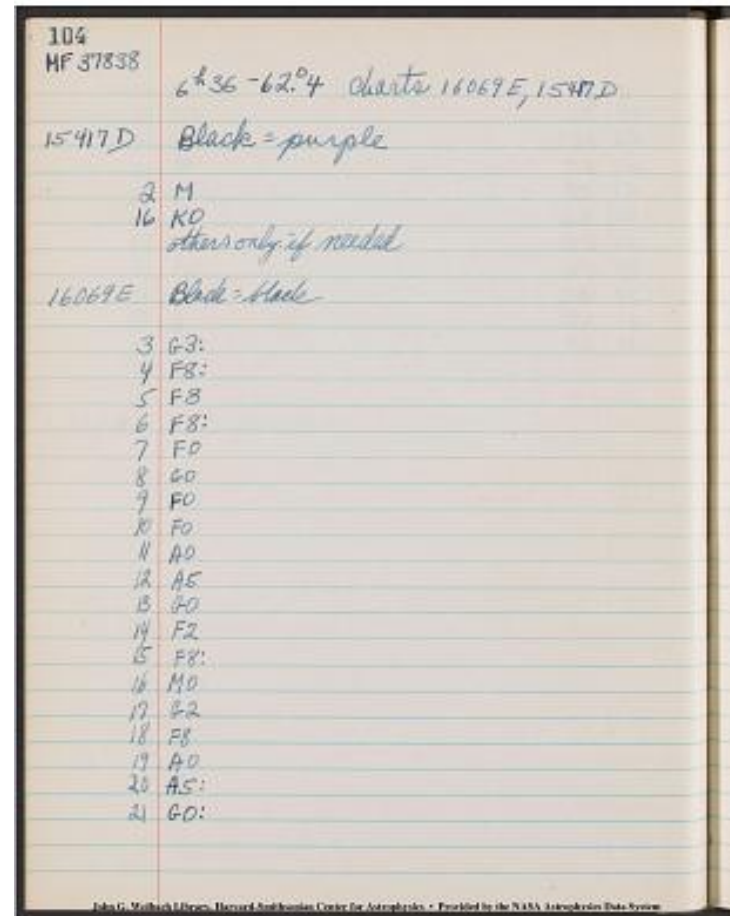 104
MF 37838
6h 36 -62.°4 charts 16069E, 15417D
15417D Black = purple
2 M
16 K0
others only if needed
16069E Black = black
3 G3:
4 F8:
5 F8
6 F8:
7 F0
8 G0
9 F0
10 F0
11 A0
12 A5
13 G0
14 F2
15 F8:
16 M0
17 G2
18 F8
19 A0
20 A5:
21 G0:
John G. Wolbach Library, Harvard-Smithsonian Center for Astrophysics • Provided by the NASA Astrophysics Data System